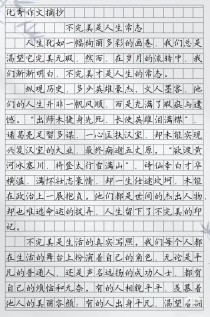 优秀作文摘抄
不完美是人生常态
人生优如一幅绚丽多彩的画卷，我们总是
渴望它完美无瑕。然而，在岁月的流转中，我
们渐渐明白，不完美才是人生的常态。
纵观历史，多少英雄豪杰、文人墨客，他
们的人生并非一帆风顺，而是充满了瑕疵与遗
憾。“出师未捷身先死，长使英雄泪满襟”，
诸葛亮足智多谋，一心匡扶汉室，却未能实现
兴复汉室的大业，最终病逝五丈原。“欲渡黄
河冰塞川，将登太行雪满山”，诗仙李白才华
横溢，满怀壮志豪情，却一生仕途坎坷，未能
在政治上一展抱负。他们都是世间的杰出人物
却也难逃命运的捉弄，人生留下了不完美的印
记。
不完美是生活的真实写照。我们每个人都
在生活的舞台上扮演着自己的角色，无论是平
凡的普通人，还是声名远扬的成功人士，都有
自己的烦恼和无奈。有的人相貌平平，羡慕着
他人的美丽容颜；有的人出身平凡，渴望着